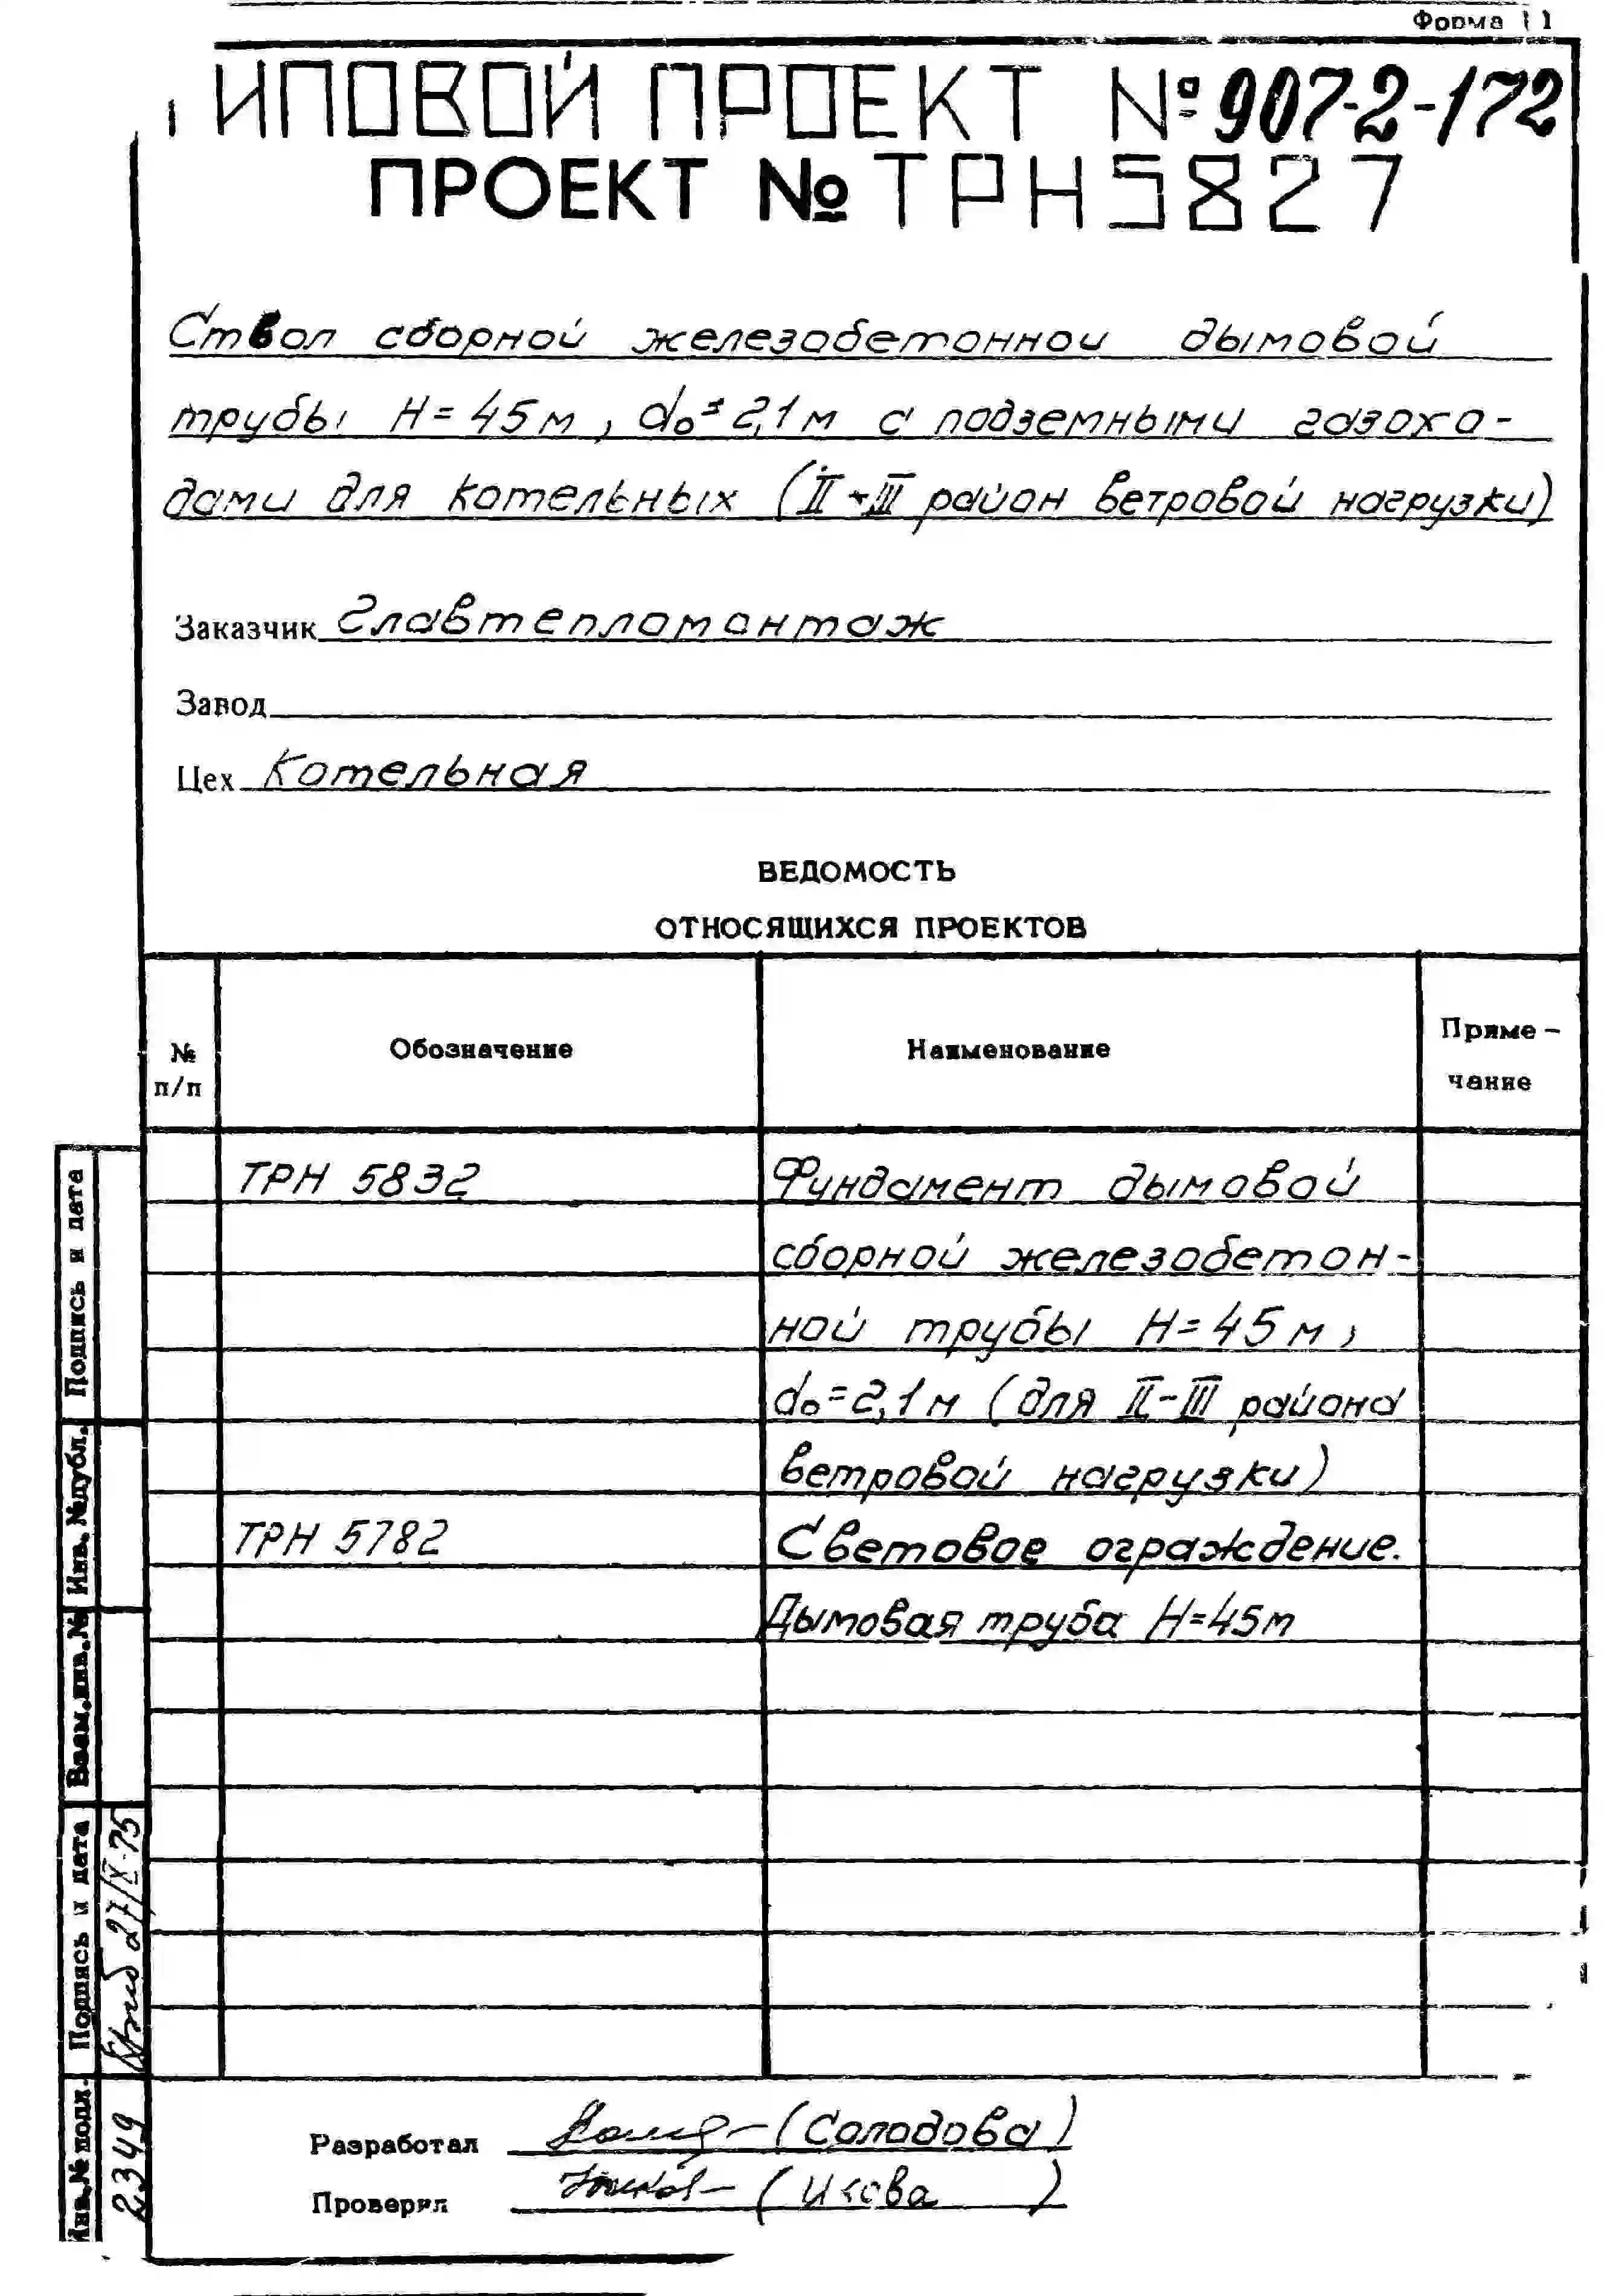 Форма 11
ТИПОВОЙ ПРОЕКТ № 907-2-172
ПРОЕКТ № ТРН5827
Ствол сборной железобетонной дымовой
трубы H=45м, d₀=2,1м с подземными газохо-
дами для котельных (II-III район ветровой нагрузки)
Заказчик Главтепломонтаж
Завод
Цех Котельная
ВЕДОМОСТЬ
ОТНОСЯЩИХСЯ ПРОЕКТОВ
№ п/п
Обозначение
Наименование
Приме-
чание
ТРН 5832 Фундамент дымовой
сборной железобетон-
ной трубы H=45м,
d₀=2,1м (для II-III района
ветровой нагрузки)
ТРН 5782 Световое ограждение.
Дымовая труба H=45м
Подпись и дата
Инв. №дубл.
Взам.инв.№
Подпись и дата
27/X-75
Инв.№ подл.
2349
Разработал (Солодова)
Проверил